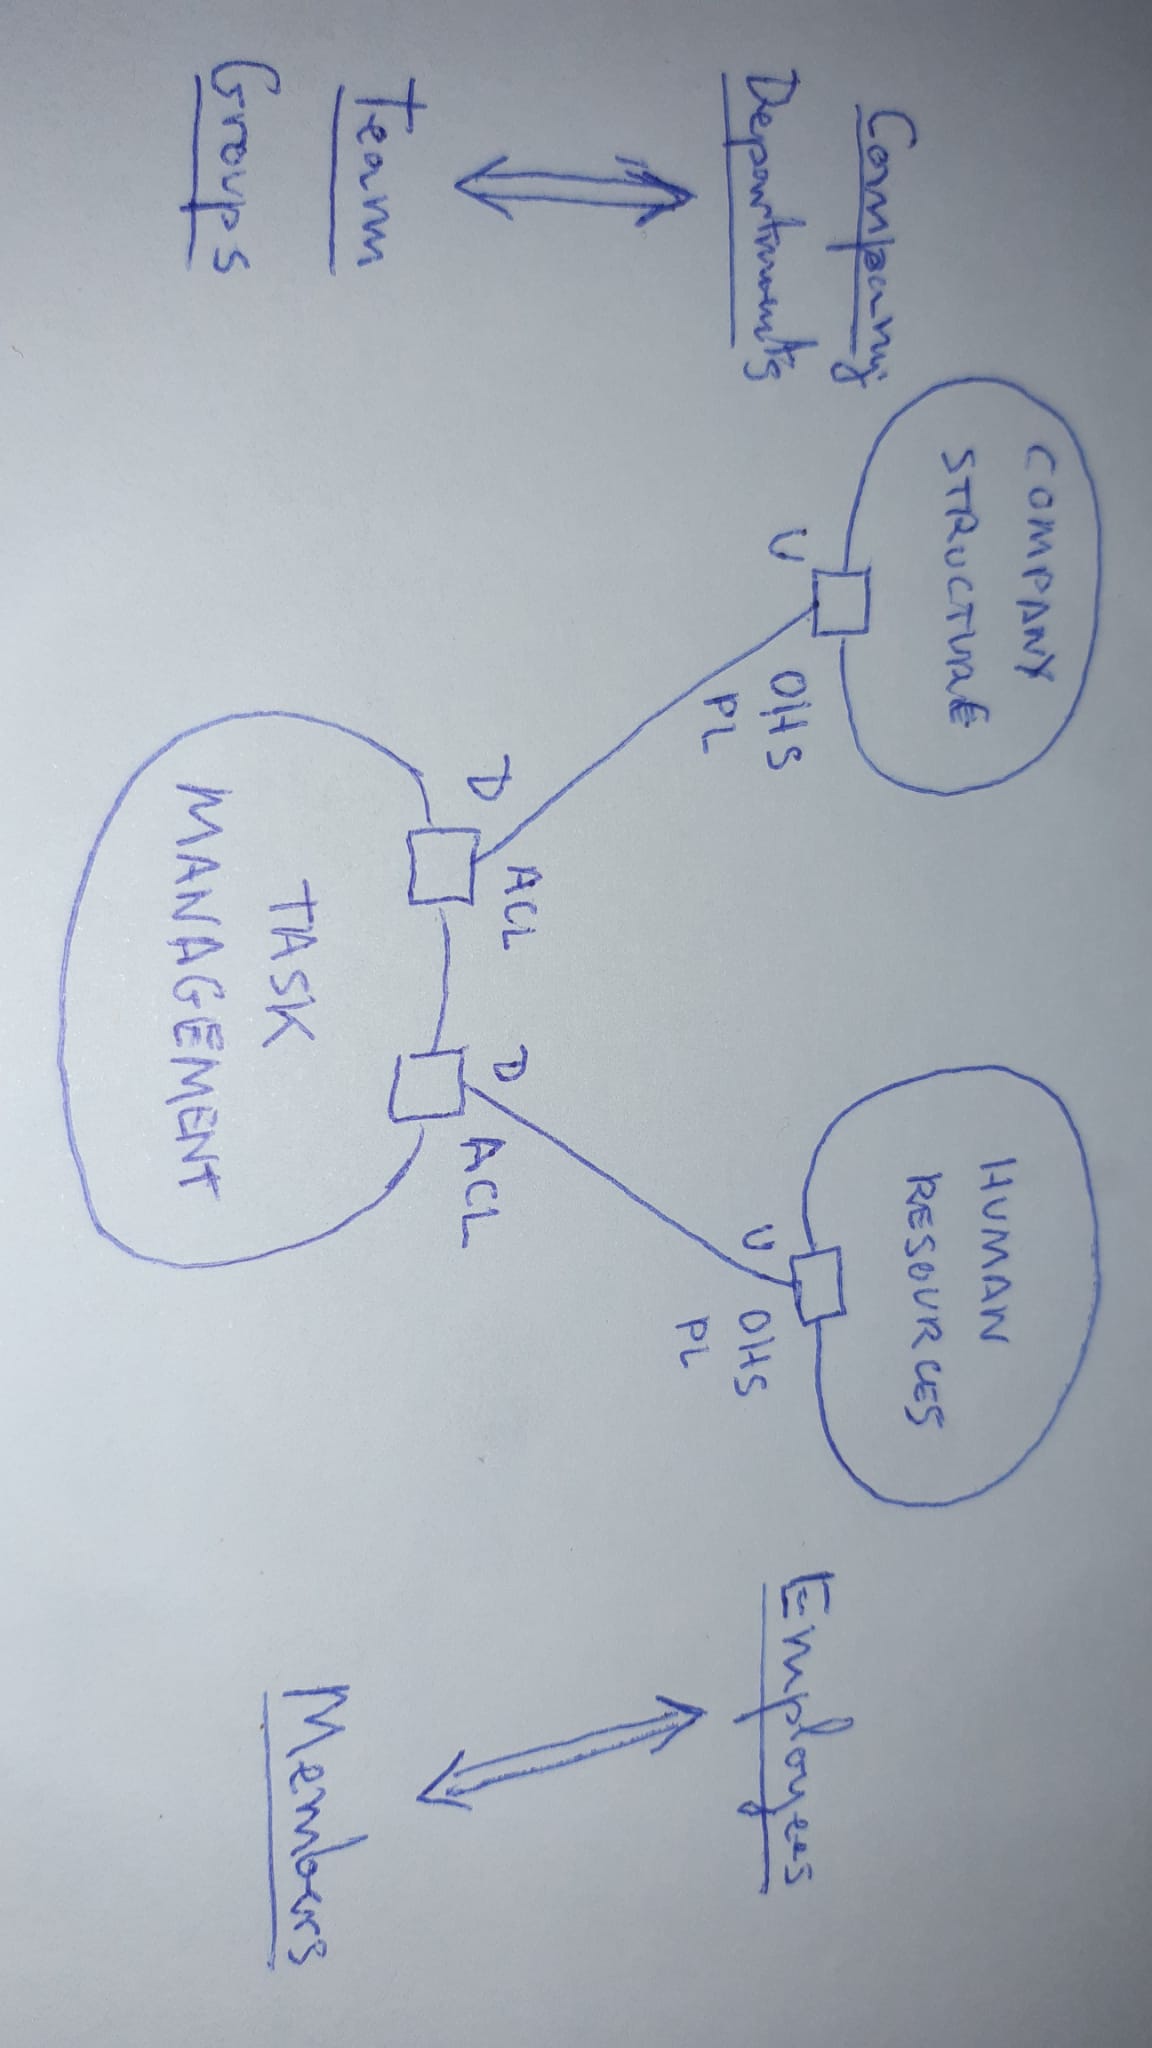 COMPANY
STRUCTURE
HUMAN
RESOURCES
Company
Departments
U
OHS
PL
U
OHS
PL
Employees
D
ACL
D
ACL
Team
Groups
TASK
MANAGEMENT
Members